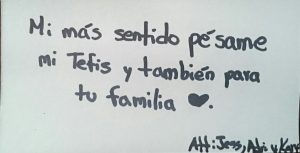 Mi más sentido pésame
mi Tefis y también para
tu familia ♥.
Att: Jess, y